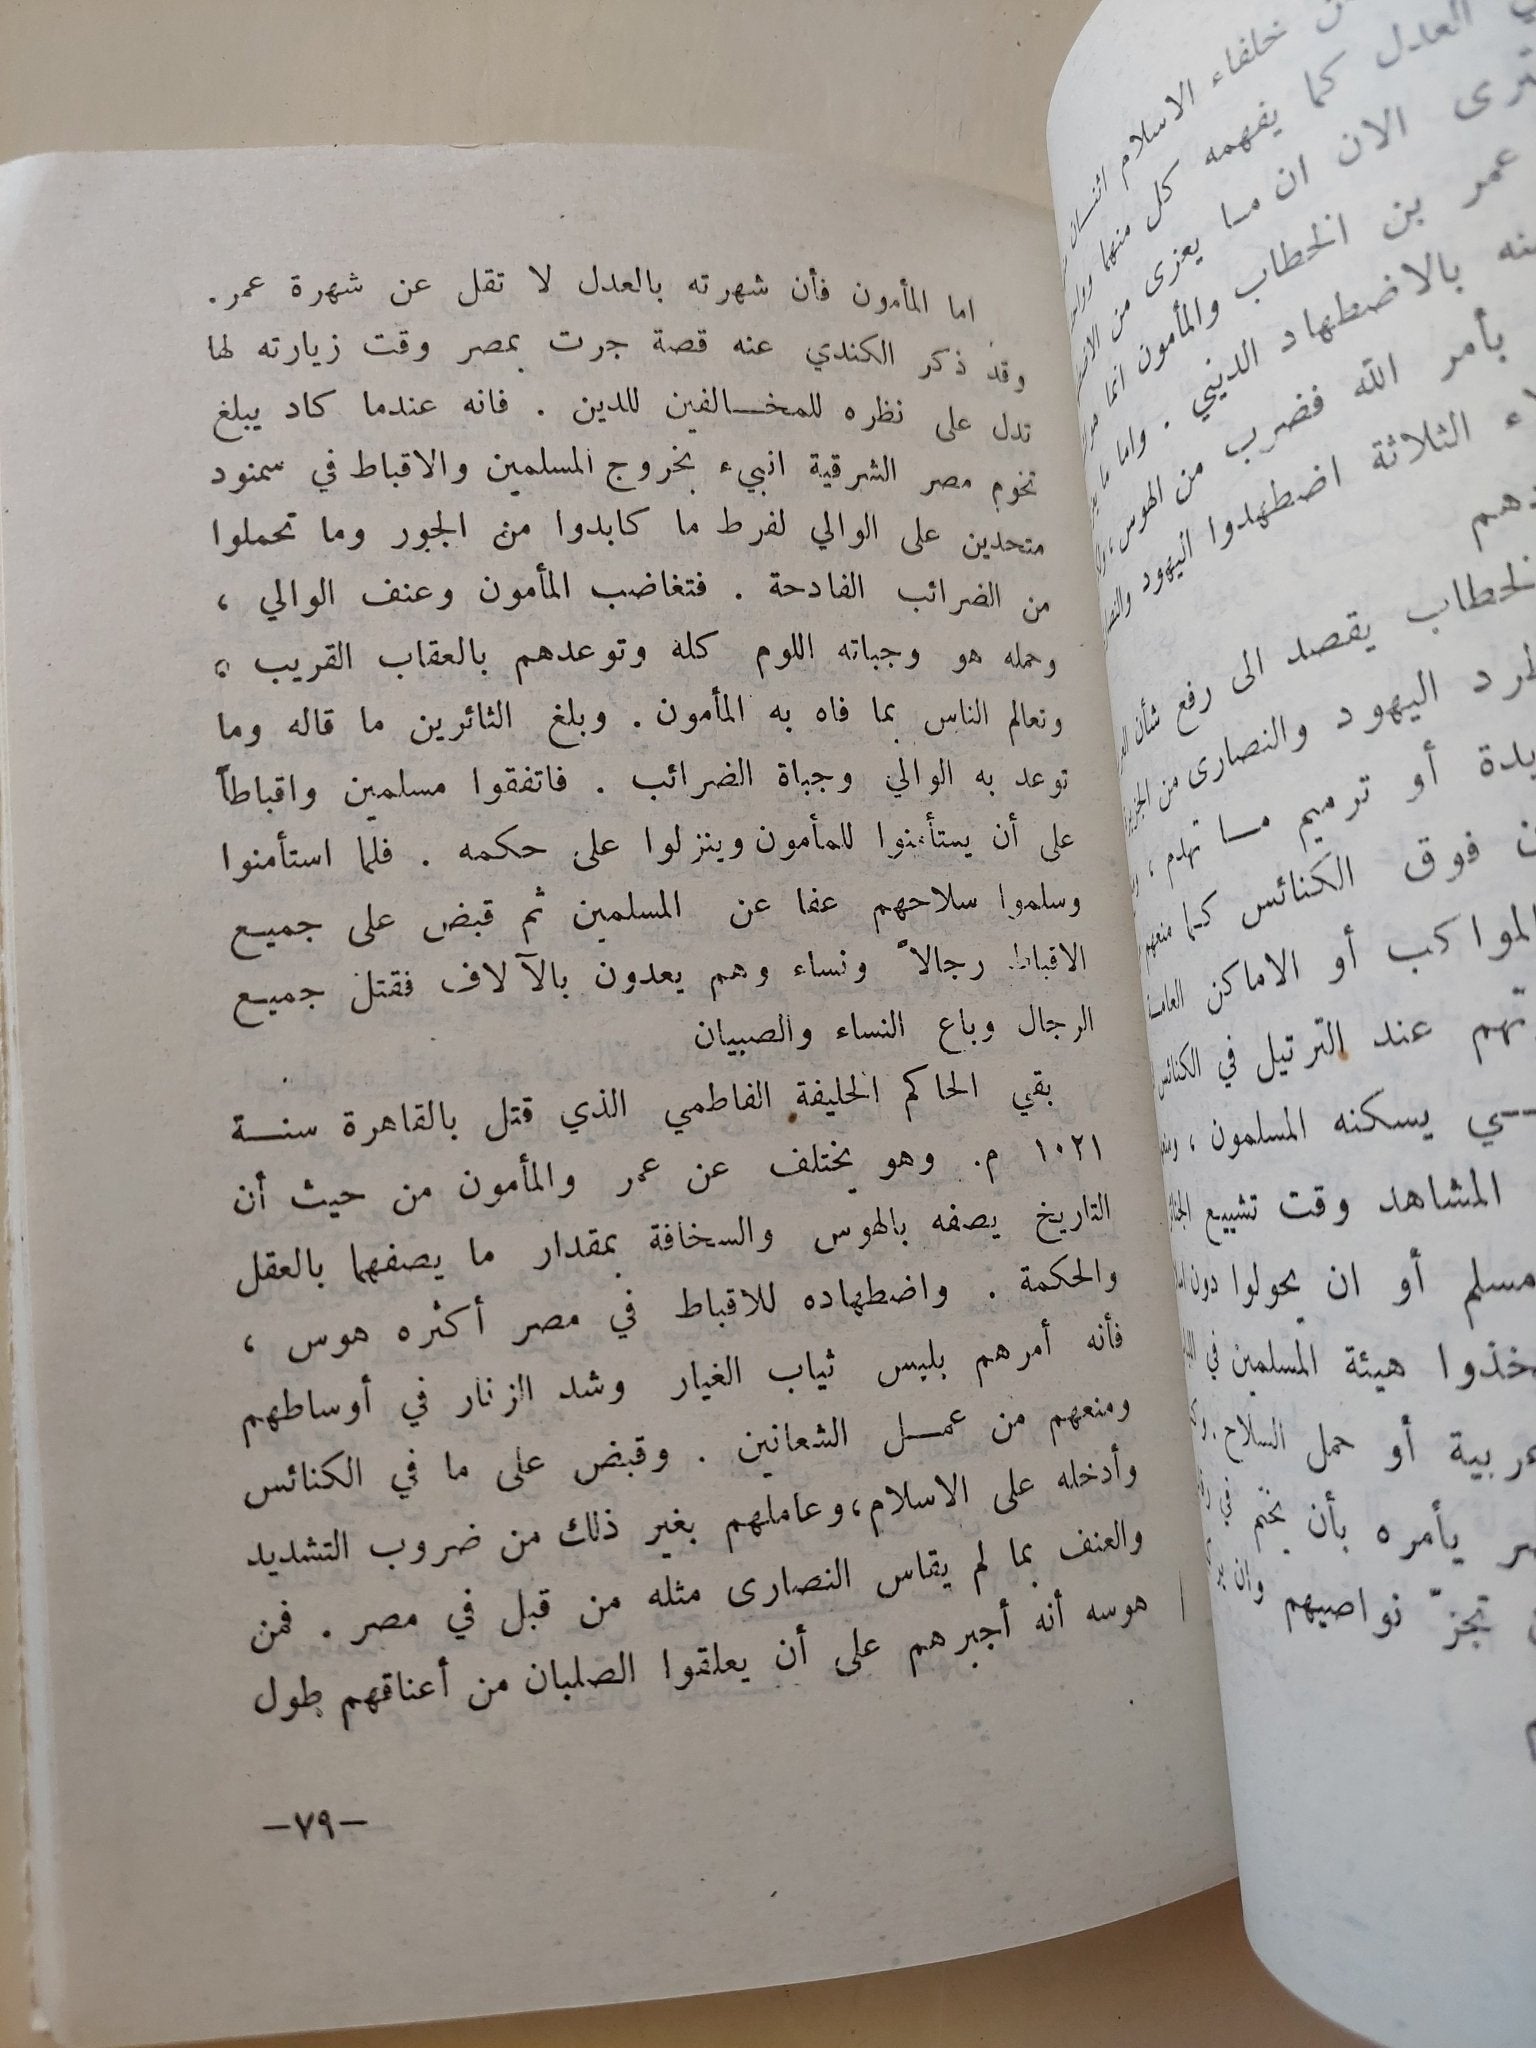 اما المأمون فأن شهرته بالعدل لا تقل عن شهرة عمر.
وقد ذكر الكندي عنه قصة جرت بمصر وقت زيارته لها
تدل على نظره للمخالفين للدين . فانه عندما كاد يبلغ
تخوم مصر الشرقية انبيء بخروج المسلمين والاقباط في سمنود
متحدين على الوالي لفرط ما كابدوا من الجور وما تحملوا
من الضرائب الفادحة . فتغاضب المأمون وعنف الوالي ،
وحمله هو وجباته اللوم كله وتوعدهم بالعقاب القريب ،
وتعالم الناس بما فاه به المأمون . وبلغ الثائرين ما قاله وما
توعد به الوالي وجباة الضرائب . فاتفقوا مسلمين واقباطاً
على أن يستأمنوا للمأمون وينزلوا على حكمه . فلما استأمنوا
وسلموا سلاحهم عفا عن المسلمين ثم قبض على جميع
الاقباط رجالاً ونساء وهم يعدون بالآلاف فقتل جميع
الرجال وباع النساء والصبيان
بقي الحاكم الخليفة الفاطمي الذي قتل بالقاهرة سنة
١٠٢١ م. وهو يختلف عن عمر والمأمون من حيث أن
التاريخ يصفه بالهوس والسخافة بمقدار ما يصفهما بالعقل
والحكمة . واضطهاده للاقباط في مصر أكثره هوس ،
فأنه أمرهم بلبس ثياب الغيار وشد الزنار في أوساطهم
ومنعهم من عمل الشعانين . وقبض على ما في الكنائس
وأدخله على الاسلام، وعاملهم بغير ذلك من ضروب التشديد
والعنف بما لم يقاس النصارى مثله من قبل في مصر . فمن
هوسه أنه أجبرهم على أن يعلقوا الصلبان من أعناقهم طول
-٧٩-
خلفاء الاسلام اثنان
العدل كما يفهمه كل منهما
الان ان ما يعزى من
عمر بن الخطاب والمأمون انما
بالاضطهاد الديني . واما ما
بأمر الله فضرب من الهوس،
الثلاثة اضطهدوا اليهود
الخطاب يقصد الى رفع شأن
اليهود والنصارى من
أو ترميم ما تهدم ،
فوق الكنائس كما منعهم
المواكب أو الاماكن العامة
عند الترتيل في الكنائس
يسكنه المسلمون ،
المشاهد وقت تشييع
مسلم أو ان يحولوا دون
هيئة المسلمين في
أو حمل السلاح .
يأمره بأن يختم في
تجزّ نواصيهم وان